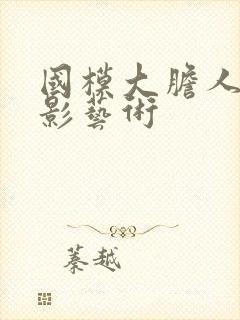 國模大膽人
影藝術
蓁越